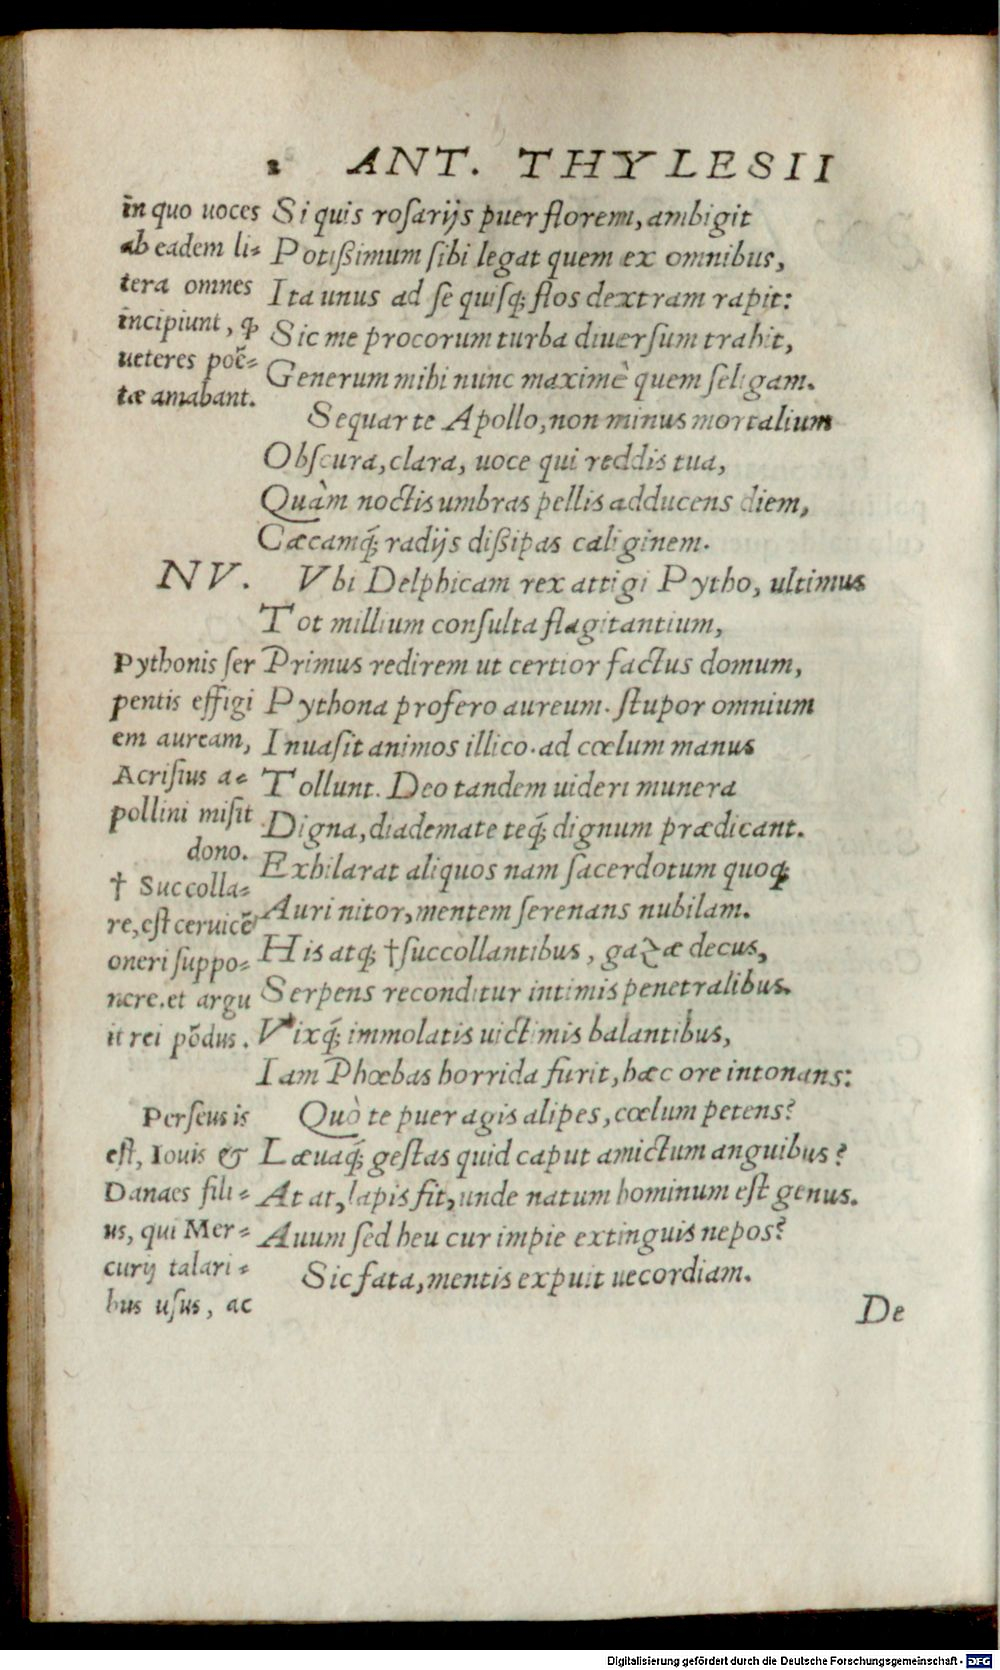 2 ANT. THYLESII
in quo uoces
ab eadem li⸗
tera omnes
incipiunt, ꝙ
ueteres poë̃⸗
tæ amabant.
Si quis rosarijs puer florem, ambigit
Potißimum sibi legat quem ex omnibus,
Ita unus ad se quisq; flos dextram rapit:
Sic me procorum turba diuersum trahit,
Generum mihi nunc maximè quem seligam.
Sequar te Apollo, non minus mortalium
Obscura, clara, uoce qui reddis tua,
Quàm noctis umbras pellis adducens diem,
Cæcamq́; radijs dißipas caliginem.
NV. Vbi Delphicam rex attigi Pytho, ultimus
Tot millium consulta flagitantium,
Primus redirem ut certior factus domum,
Pythona profero aureum. stupor omnium
Inuasit animos illico. ad cœlum manus
Tollunt. Deo tandem uideri munera
Digna, diademate teq́; dignum prædicant.
Exhilarat aliquos nam sacerdotum quoq;
Auri nitor, mentem serenans nubilam.
His atq; † succollantibus, gazæ decus,
Serpens reconditur intimis penetralibus.
Vixq́; immolatis uictimis balantibus,
Iam Phœbas horrida furit, hæc ore intonans:
Quò te puer agis alipes, cœlum petens?
Læuaq́; gestas quid caput amictum anguibus?
At at, lapis fit, unde natum hominum est genus.
Auum sed heu cur impie extinguis nepos?
Sic fata, mentis expuit uecordiam.
Pythonis ser
pentis effigi
em auream,
Acrisius a⸗
pollini misit
dono.
† Succolla⸗
re, est ceruicẽ
oneri suppo⸗
nere. et argu
it rei põdus.
Perseus is
est, Iouis &
Danaes fili⸗
us, qui Mer⸗
curij talari⸗
bus usus, ac
De
Digitalisierung gefördert durch die Deutsche Forschungsgemeinschaft - DFG